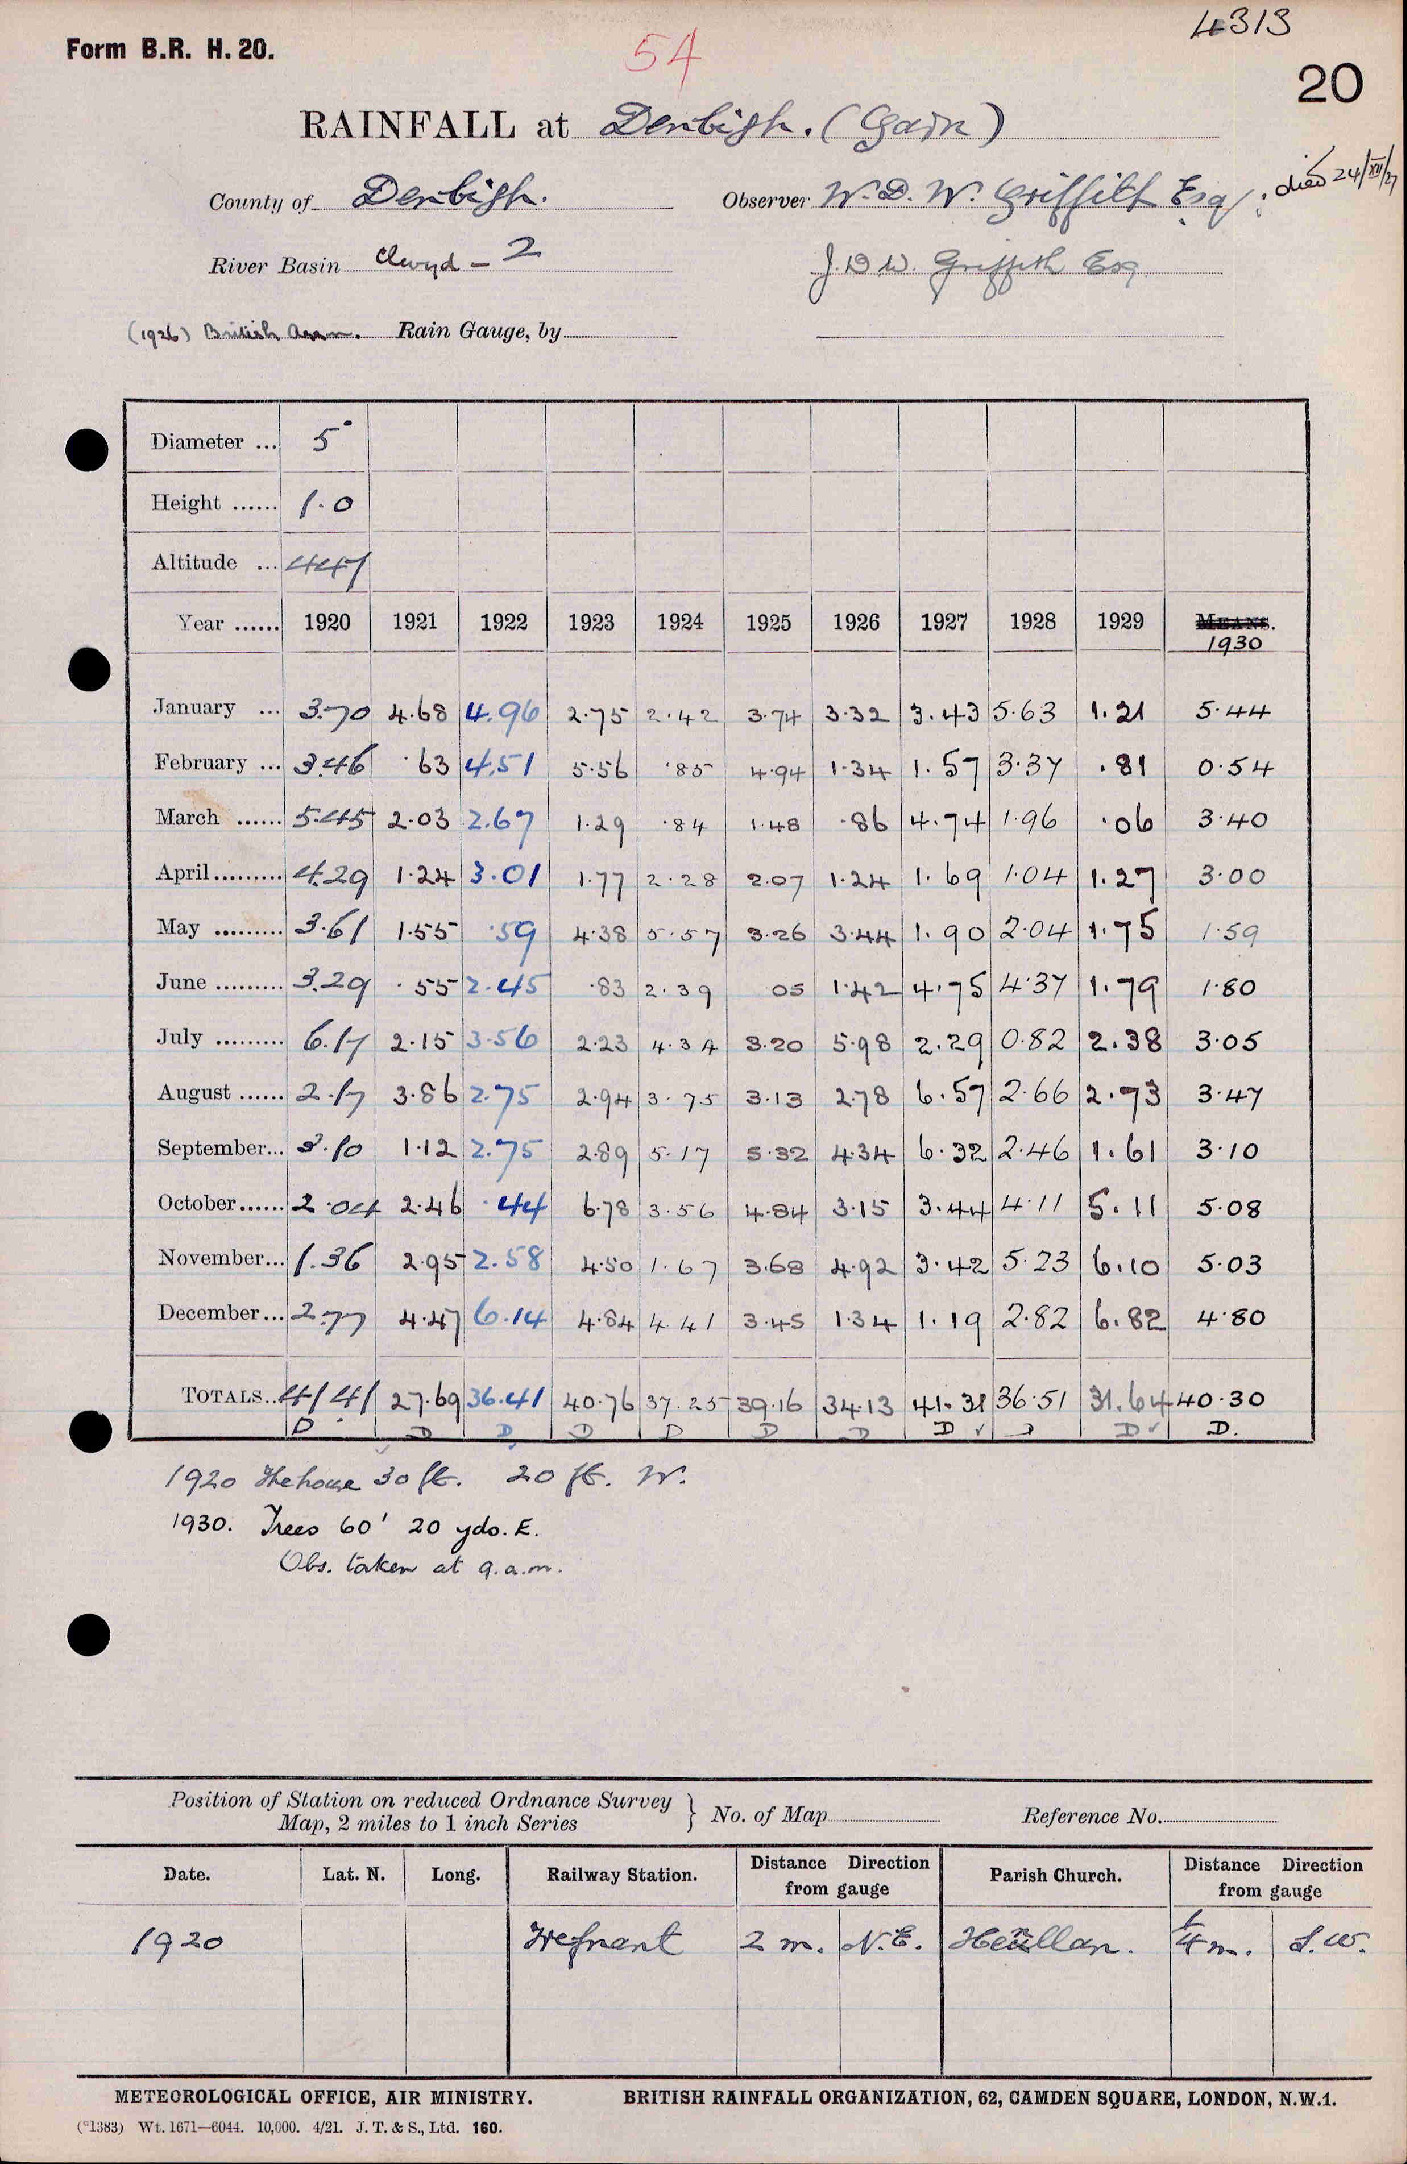 4313
Form B.R. H. 20.
54
20
RAINFALL at Denbigh. (Garn)
County of Denbigh. Observer W. D. W. Griffith Esq; died 24/XII/27
River Basin Clwyd – 2 J. D W. Griffith Esq
(1926) British Assn. Rain Gauge, by
Diameter ... 5"
Height ...... 1.0
Altitude ... 447
Year ...... 1920 1921 1922 1923 1924 1925 1926 1927 1928 1929 MEANS.
1930
January ... 3.70 4.68 4.96 2.75 2.42 3.74 3.32 3.43 5.63 1.21 5.44
February ... 3.46 .63 4.51 5.56 .85 4.94 1.34 1.57 3.37 .81 0.54
March ...... 5.45 2.03 2.67 1.29 .84 1.48 .86 4.74 1.96 .06 3.40
April......... 4.29 1.24 3.01 1.77 2.28 2.07 1.24 1.69 1.04 1.27 3.00
May ......... 3.61 1.55 .59 4.38 5.57 3.26 3.44 1.90 2.04 1.75 1.59
June ......... 3.29 .55 2.45 .83 2.39 05 1.42 4.75 4.37 1.79 1.80
July ......... 6.17 2.15 3.56 2.23 4.34 3.20 5.98 2.29 0.82 2.38 3.05
August ...... 2.17 3.86 2.75 2.94 3.75 3.13 2.78 6.57 2.66 2.73 3.47
September... 3.10 1.12 2.75 2.89 5.17 5.32 4.34 6.32 2.46 1.61 3.10
October...... 2.04 2.46 .44 6.78 3.56 4.84 3.15 3.44 4.11 5.11 5.08
November... 1.36 2.95 2.58 4.50 1.67 3.68 4.92 3.42 5.23 6.10 5.03
December... 2.77 4.47 6.14 4.84 4.41 3.45 1.34 1.19 2.82 6.82 4.80
TOTALS.. 41.41 27.69 36.41 40.76 37.25 39.16 34.13 41.31 36.51 31.64 40.30
D D D D D D D D ✓ D D ✓ D.
1920 The house 30 ft. 20 ft. W.
1930. Trees 60' 20 yds. E.
Obs. taken at 9.a.m.
Position of Station on reduced Ordnance Survey
Map, 2 miles to 1 inch Series } No. of Map Reference No.
Date. Lat. N. Long. Railway Station. Distance Direction from gauge Parish Church. Distance Direction from gauge
1920 Trefnant 2 m. N.E. Henllan. 1/4 m. S.W.
METEOROLOGICAL OFFICE, AIR MINISTRY. BRITISH RAINFALL ORGANIZATION, 62, CAMDEN SQUARE, LONDON, N.W.1.
(*1383) Wt. 1671—6044. 10,000. 4/21. J. T. & S., Ltd. 160.